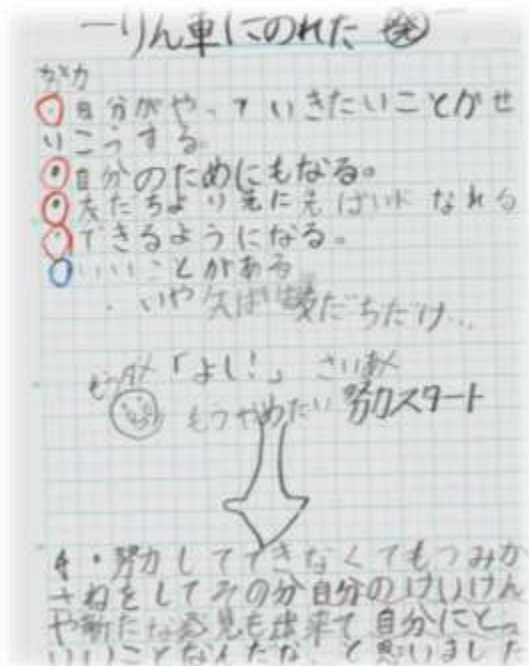 一りん車にのれた
自分がやっていきたいことがせ
いこうする
自分のためにもなる。
友だちより先に先ぱいになれる
できるようになる。
いいことがある
・いや先ぱいは友だちだけ…
「よし!」
もうやめたい 努力スタート
・努力してできなくてもつみか
さねをしてその分自分のけいけん
や新たな発見も出来て自分にとっ
いいことなんだな と思いました